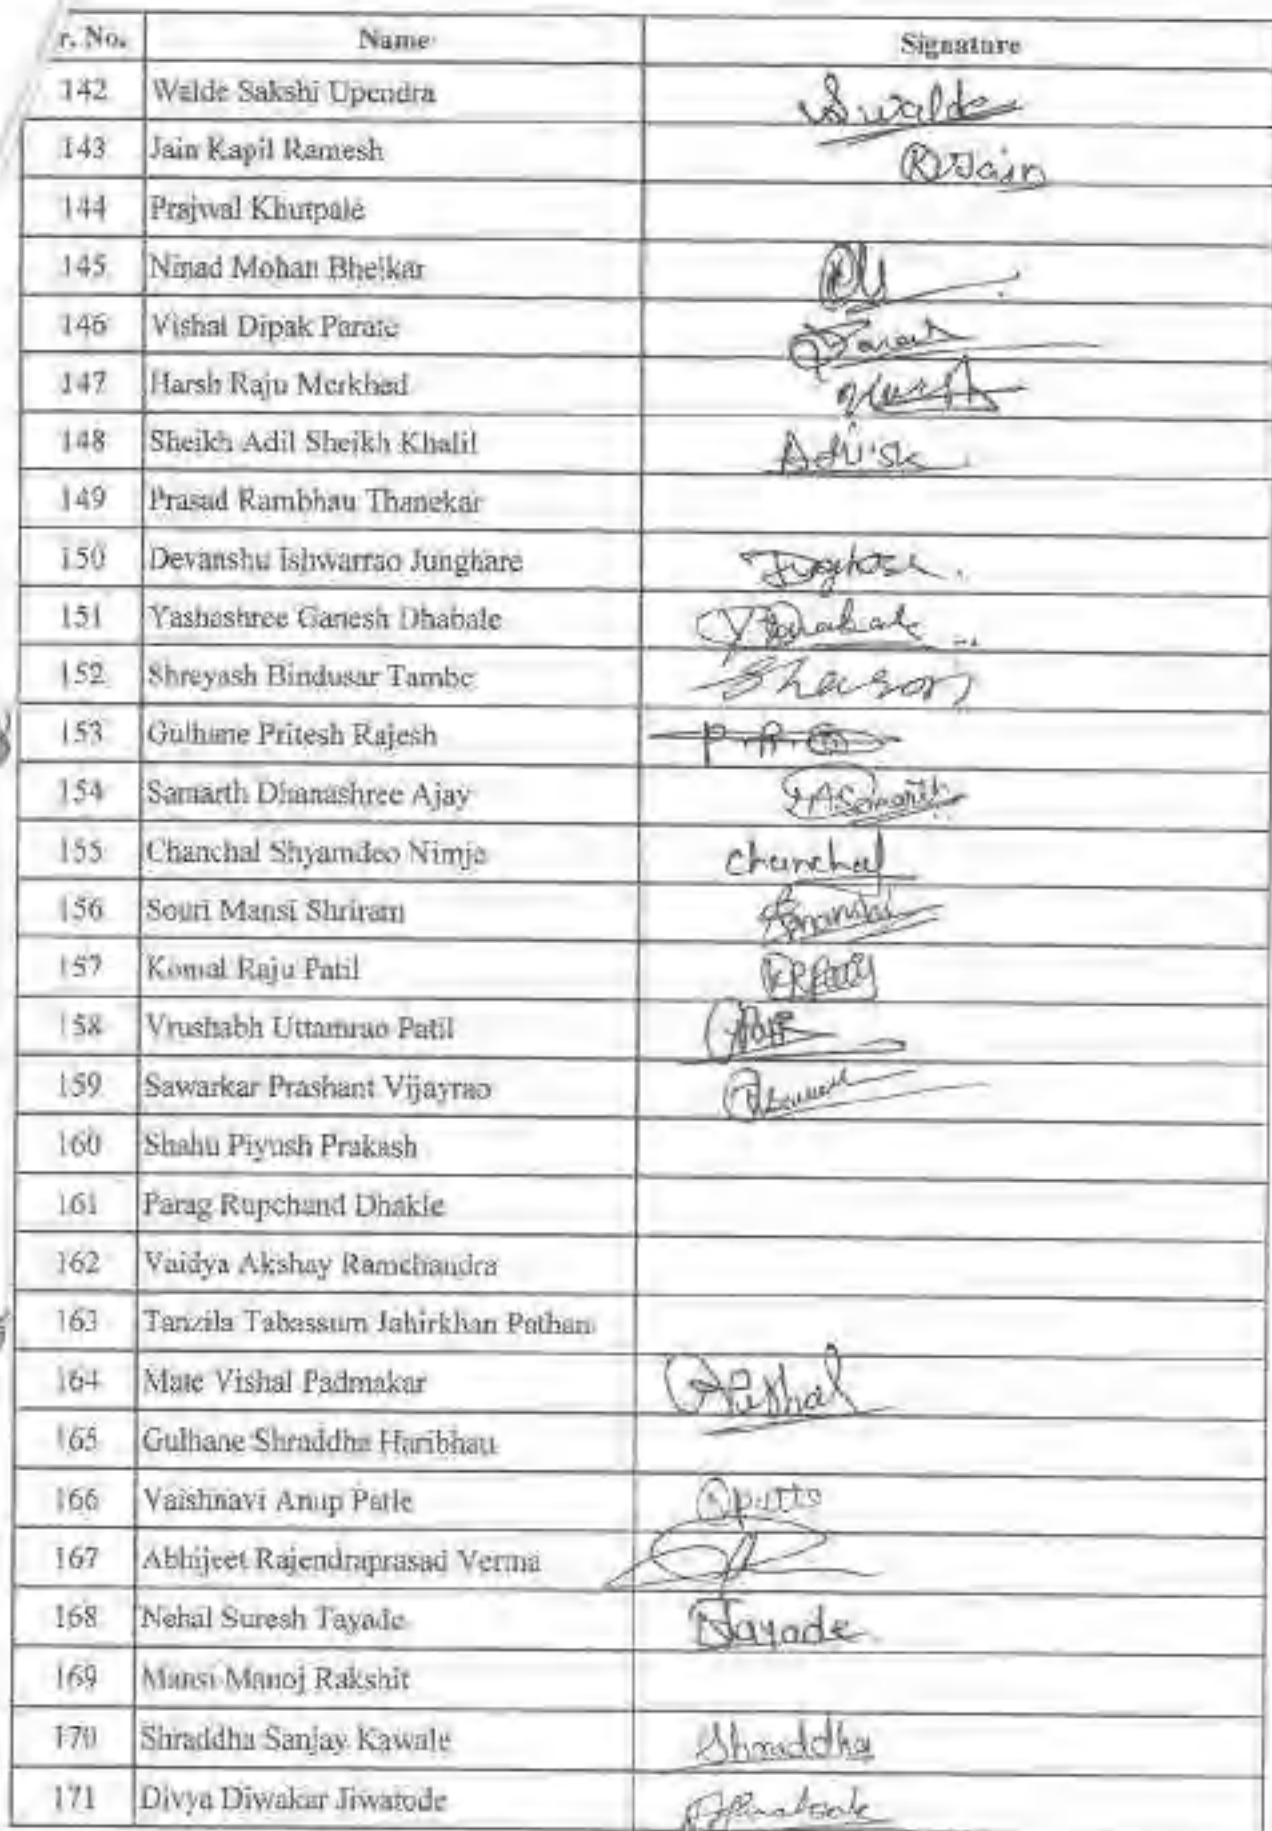 r. No. Name Signature
142 Walde Sakshi Upendra Swalde
143 Jain Kapil Ramesh RJain
144 Prajwal Khutpale
145 Ninad Mohan Bhelkar
146 Vishal Dipak Parate
147 Harsh Raju Merkhed
148 Sheikh Adil Sheikh Khalil
149 Prasad Rambhau Thanekar
150 Devanshu Ishwarrao Junghare
151 Yashashree Ganesh Dhabale
152 Shreyash Bindusar Tambe
153 Gulhane Pritesh Rajesh
154 Samarth Dhanashree Ajay
155 Chanchal Shyamdeo Nimje Chanchal
156 Souri Mansi Shriram
157 Komal Raju Patil
158 Vrushabh Uttamrao Patil
159 Sawarkar Prashant Vijayrao
160 Shahu Piyush Prakash
161 Parag Rupchand Dhakle
162 Vaidya Akshay Ramchandra
163 Tanzila Tabassum Jahirkhan Pathan
164 Mate Vishal Padmakar Vishal
165 Gulhane Shraddha Haribhau
166 Vaishnavi Anup Patle
167 Abhijeet Rajendraprasad Verma
168 Nehal Suresh Tayade Tayade
169 Mansi Manoj Rakshit
170 Shraddha Sanjay Kawale Shraddha
171 Divya Diwakar Jiwatode